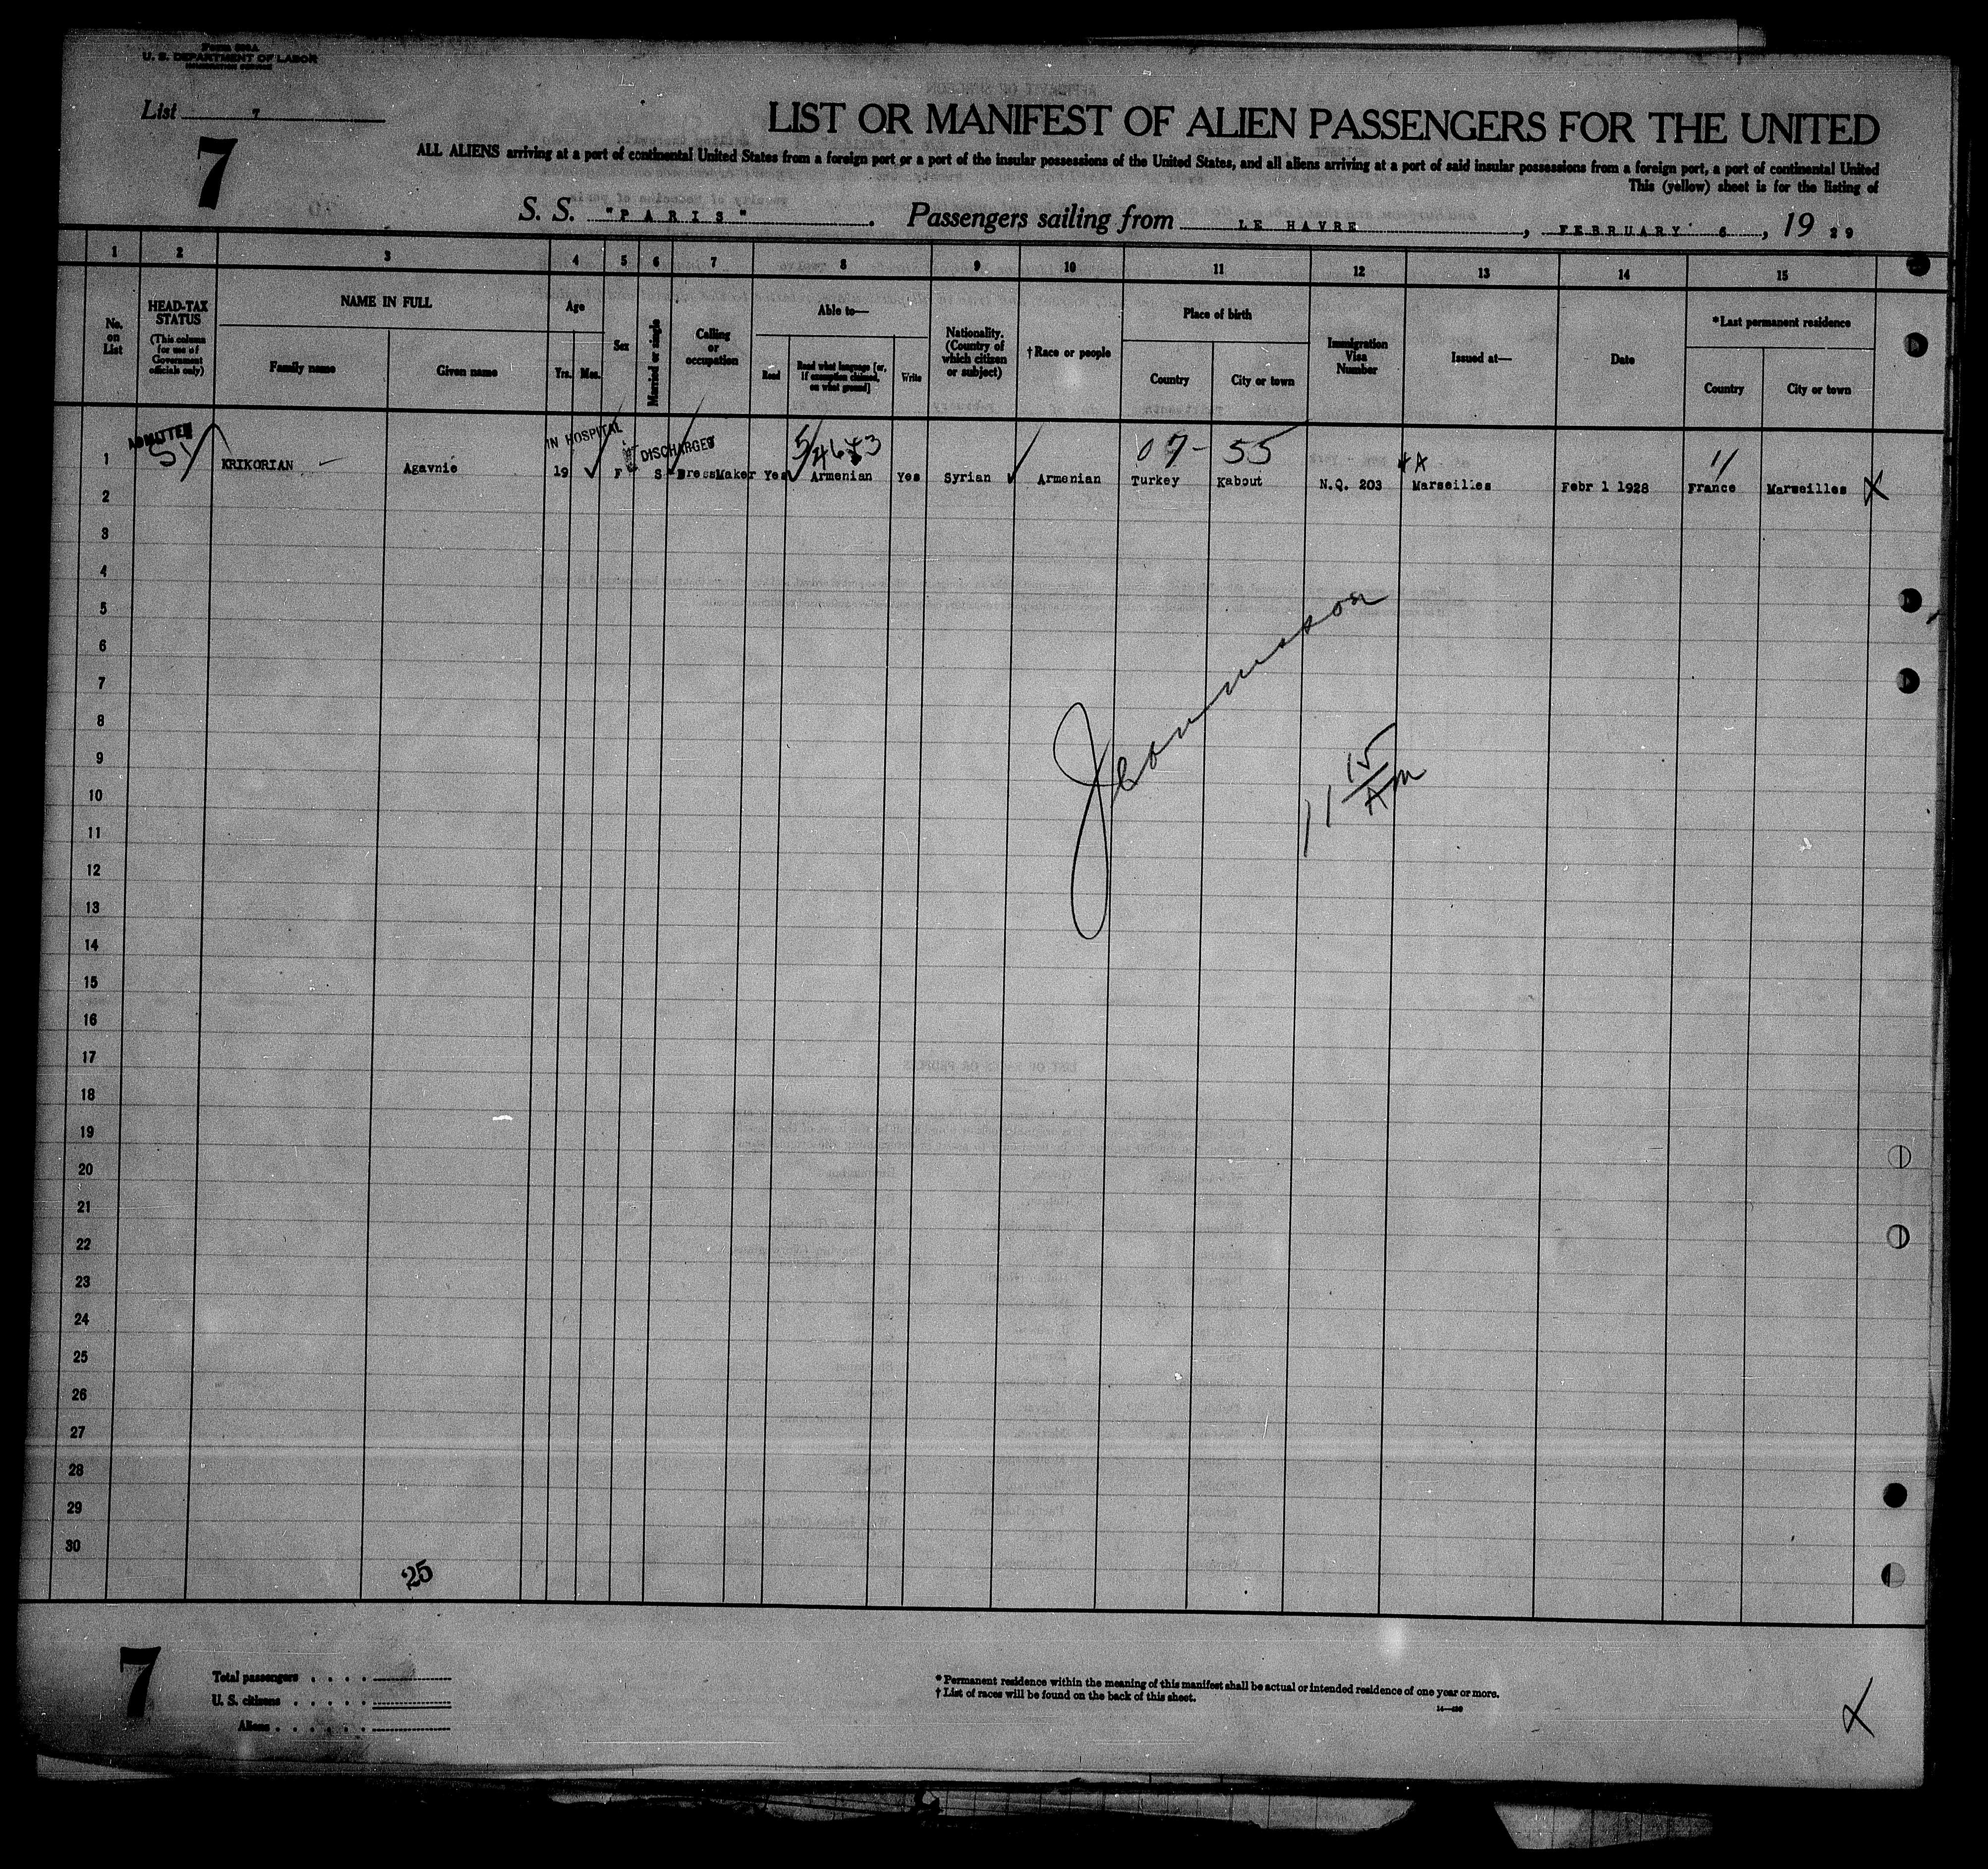 Form 500 A
U. S. DEPARTMENT OF LABOR
IMMIGRATION SERVICE
List 7
7
LIST OR MANIFEST OF ALIEN PASSENGERS FOR THE UNITED
ALL ALIENS arriving at a port of continental United States from a foreign port or a port of the insular possessions of the United States, and all aliens arriving at a port of said insular possessions from a foreign port, a port of continental United
This (yellow) sheet is for the listing of
S. S. "PARIS". Passengers sailing from LE HAVRE, FEBRUARY 6, 1929
1 2 3 4 5 6 7 8 9 10 11 12 13 14 15
No. on List
HEAD-TAX STATUS
(This column for use of Government officials only)
NAME IN FULL
Family name
Given name
Age
Yrs. Mos.
Sex
Married or single
Calling or occupation
Able to—
Read
Read what language [or, if exemption claimed, on what ground]
Write
Nationality. (Country of which citizen or subject)
†Race or people
Place of birth
Country
City or town
Immigration Visa Number
Issued at—
Date
*Last permanent residence
Country
City or town
ADMITTED
IN HOSPITAL
DISCHARGED
07-55
1 KRIKORIAN Agavnie 19 F S DressMaker Yes Armenian Yes Syrian Armenian Turkey Kabout N.Q. 203 Marseilles Febr 1 1928 France Marseilles
2
3
4
5
6
7
8
9
10
11
12
13
14
15
16
17
18
19
20
21
22
23
24
25
26
27
28
29
30
11 15 AM
25
7
Total passengers
U. S. citizens
Aliens
* Permanent residence within the meaning of this manifest shall be actual or intended residence of one year or more.
† List of races will be found on the back of this sheet.